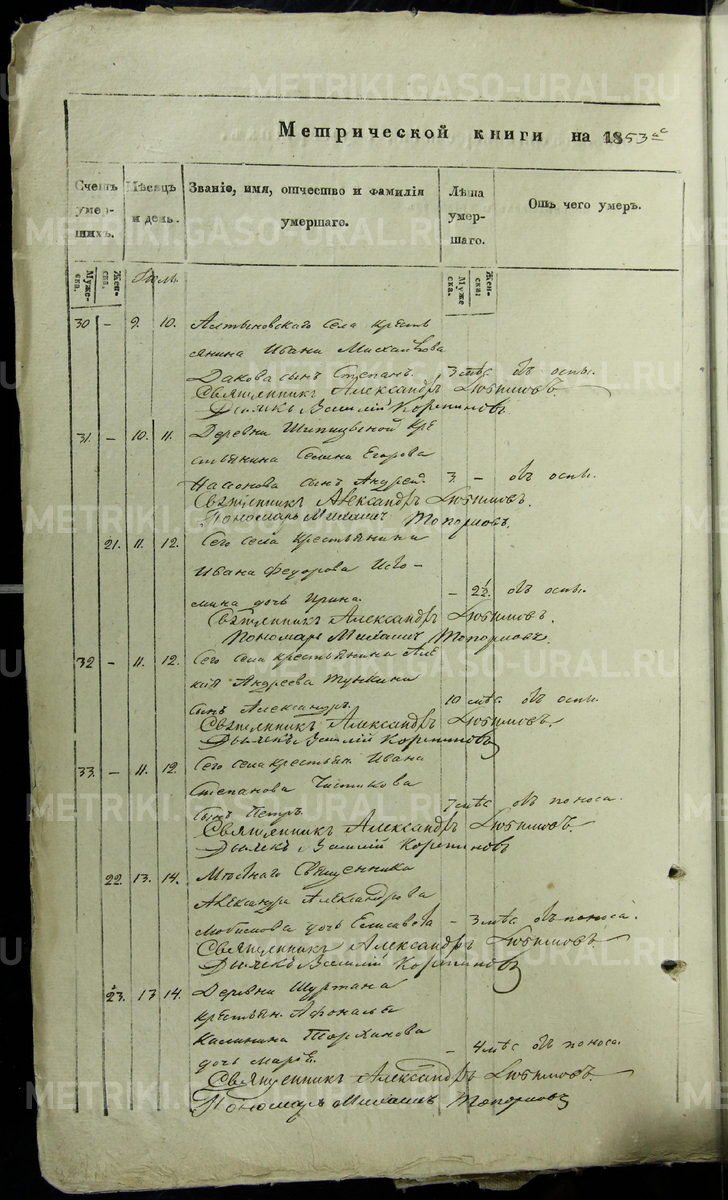 METRIKI.GASO-URAL.RU
Метрической книги на 1853 ас
Счетъ умершихъ.
Мужеска.
Женска.
Мѣсяцъ и день.
Званіе, имя, отчество и фамилія умершаго.
Лѣта умершаго.
Мужеска.
Женска.
Отъ чего умеръ.
30 – 9. 10. Алтыновскаго села кресть
янина Ивана
Дакова сынъ Степанъ. 3 мѣс. отъ оспы.
Священникъ Александръ Любимовъ.
Дьячекъ Василій
31. – 10. 11. Деревни кре
стьянина Егорова
сынъ Андрей. 3. – отъ оспы.
Священникъ Александръ Любимовъ.
Пономарь Михаилъ Топорковъ.
21. 11. 12. Сего села крестьянина
Ивана Федорова Исто–
мина дочь Ирина. – 2½. отъ оспы.
Священникъ Александръ Любимовъ.
Пономарь Михаилъ Топорковъ.
32 – 11. 12. Сего села крестьянина Але
ксѣя Андреева
сынъ Александръ. 10 мѣс. отъ оспы.
Священникъ Александръ Любимовъ.
Дьячекъ Василій
33. – 11. 12. Сего села крестьян. Ивана
Степанова Чистякова
сынъ Петръ. 7 мѣс. отъ поноса.
Священникъ Александръ Любимовъ.
Дьячекъ Василій
22. 13. 14. Мѣстнаго Священника
Александра Александрова
Любимова дочь Елисавета – 3 мѣс. отъ поноса.
Священникъ Александръ Любимовъ
Дьячекъ Василій
23. 13 14. Деревни Шуртана
крестьян.
Калинина
дочь – 4 мѣс. отъ поноса.
Священникъ Александръ Любимовъ.
Пономарь Михаилъ Топорковъ